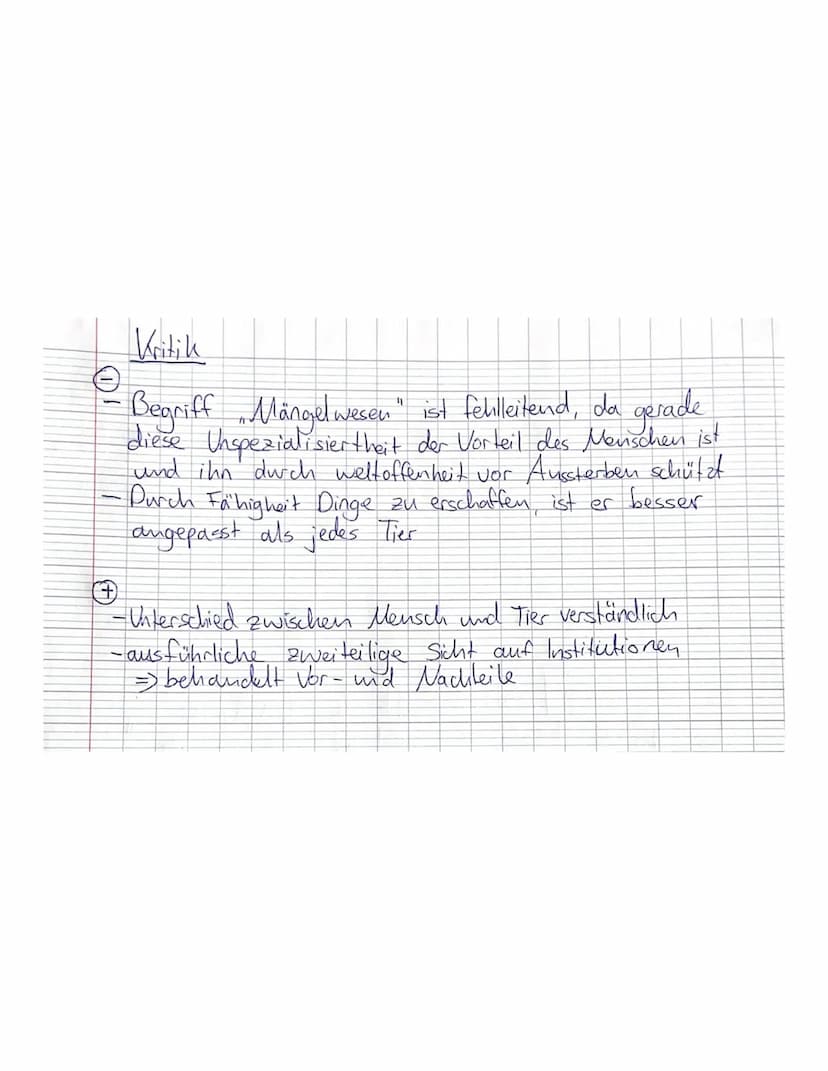 Kritik
⊖
- Begriff „Mängelwesen" ist fehlleitend, da gerade
diese Unspezialisiertheit der Vorteil des Menschen ist
und ihn durch weltoffenheit vor Aussterben schützt
- Durch Fähigkeit Dinge zu erschaffen, ist er besser
angepasst als jedes Tier
⊕
- Unterschied zwischen Mensch und Tier verständlich
- ausführliche zweiteilige Sicht auf Institutionen
⇒ behandelt Vor- und Nachteile